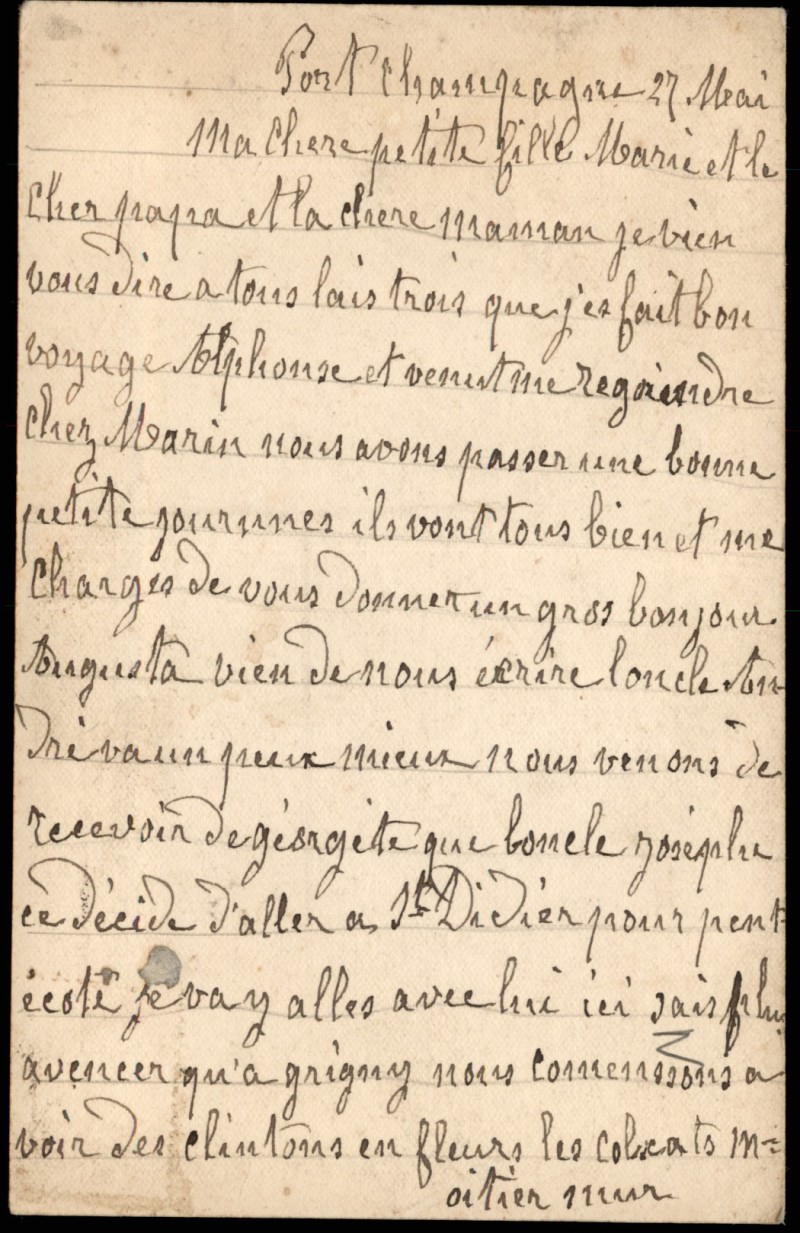 Port Champagne 27 Mai
Ma Chere petite fille Marie et le
Cher papa et la chere maman je vien
vous dire a tous lais trois que j'es fait bon
voyage Alphonse et venut me regoindre
Chez Marin nous avons passer une bonne
petite journnes ils vont tous bien et me
Charges de vous donner un gros bonjour
Augusta vien de nous écrire loncle An
dré va un peux mieux nous venons de
recevoir de géorgéte que loncle joséphe
ce décide d'aller a St Didiér pour pent=
écoté je va y alles avec lui ici sais plus
avencer qu'a grigny nous comenssons a
voir des clintons en fleurs les a m=
oitiér mur